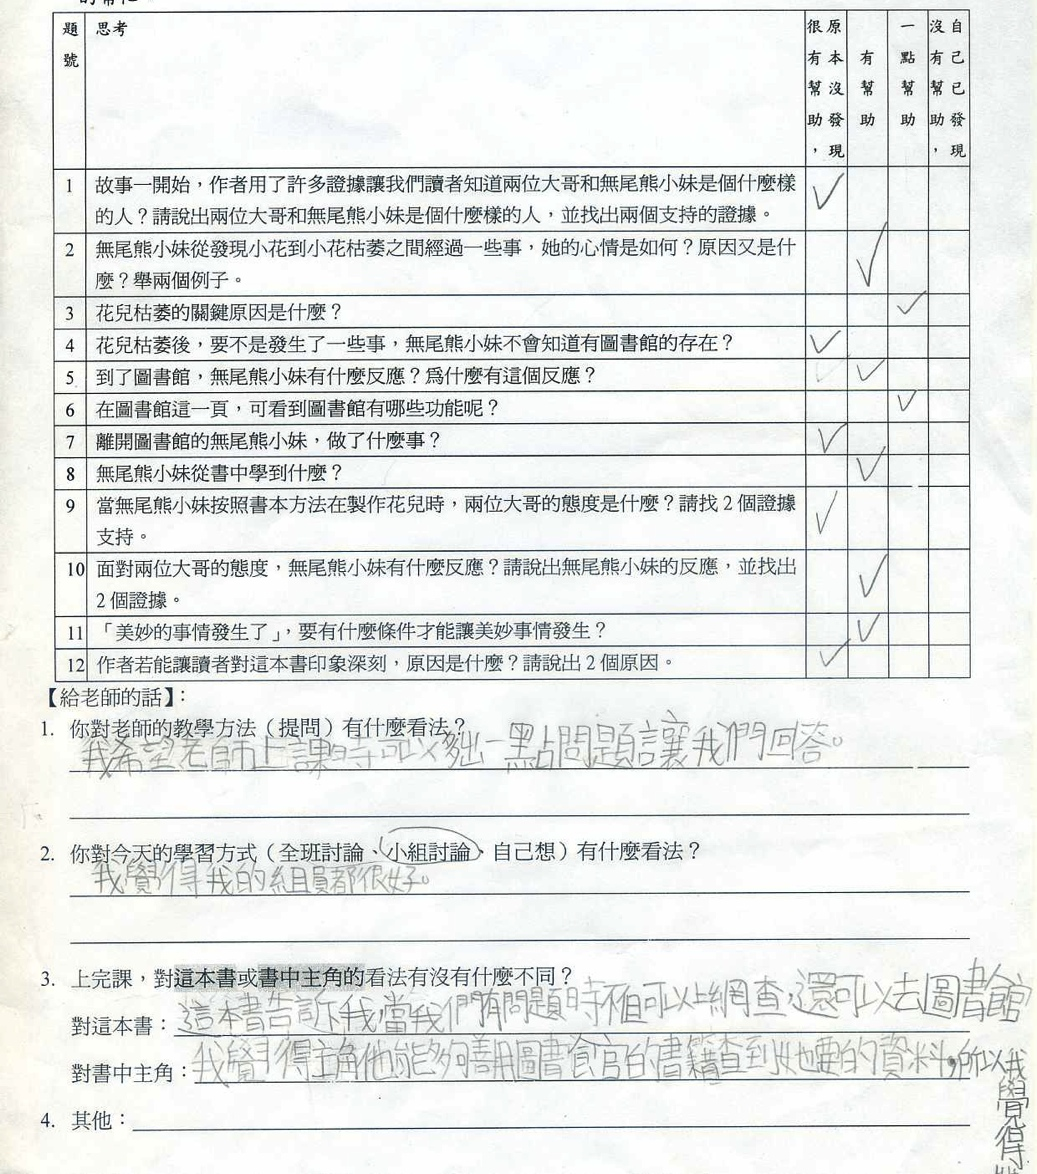 題號 思考 原本沒發現，很有幫助 有幫助 一點幫助 自己已發現，沒有幫助
1 故事一開始，作者用了許多證據讓我們讀者知道兩位大哥和無尾熊小妹是個什麼樣
的人？請說出兩位大哥和無尾熊小妹是個什麼樣的人，並找出兩個支持的證據。
2 無尾熊小妹從發現小花到小花枯萎之間經過一些事，她的心情是如何？原因又是什
麼？舉兩個例子。
3 花兒枯萎的關鍵原因是什麼？
4 花兒枯萎後，要不是發生了一些事，無尾熊小妹不會知道有圖書館的存在？
5 到了圖書館，無尾熊小妹有什麼反應？爲什麼有這個反應？
6 在圖書館這一頁，可看到圖書館有哪些功能呢？
7 離開圖書館的無尾熊小妹，做了什麼事？
8 無尾熊小妹從書中學到什麼？
9 當無尾熊小妹按照書本方法在製作花兒時，兩位大哥的態度是什麼？請找 2 個證據
支持。
10 面對兩位大哥的態度，無尾熊小妹有什麼反應？請說出無尾熊小妹的反應，並找出
2 個證據。
11 「美妙的事情發生了」，要有什麼條件才能讓美妙事情發生？
12 作者若能讓讀者對這本書印象深刻，原因是什麼？請說出 2 個原因。
【給老師的話】：
1. 你對老師的教學方法（提問）有什麼看法？
我希望老師上課時可以多出一點問題讓我們回答。
2. 你對今天的學習方式（全班討論、小組討論、自己想）有什麼看法？
我覺得我的組員都很好。
3. 上完課，對這本書或書中主角的看法有沒有什麼不同？
對這本書：這本書告訴我當我們有問題時不但可以上網查，還可以去圖書館
對書中主角：我覺得主角他能夠善用圖書館的書籍查到她要的資料，所以我
覺得
4. 其他：